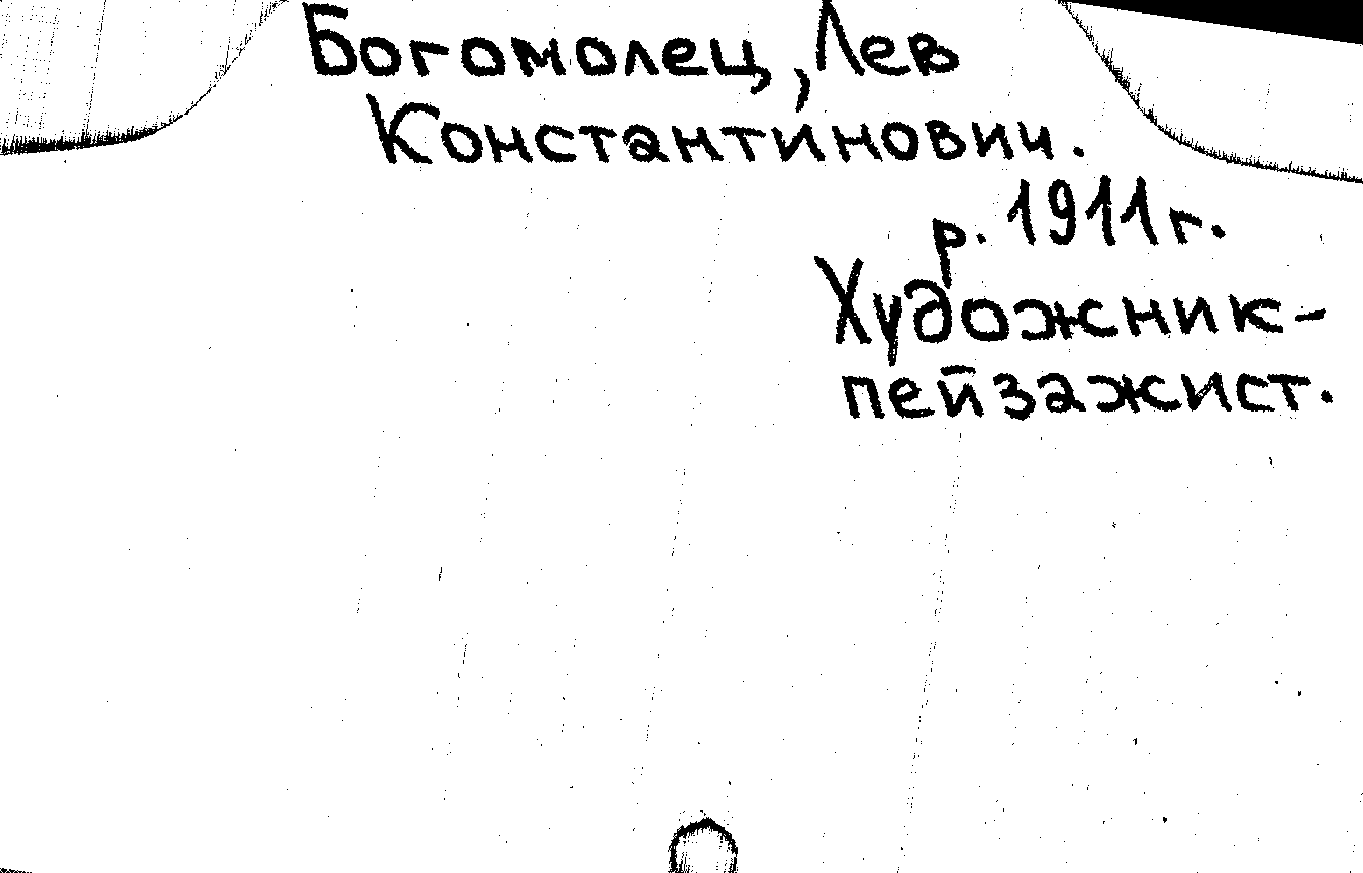 Богомолец, Лев
Константинович.
р. 1911 г.
Художник-
пейзажист.